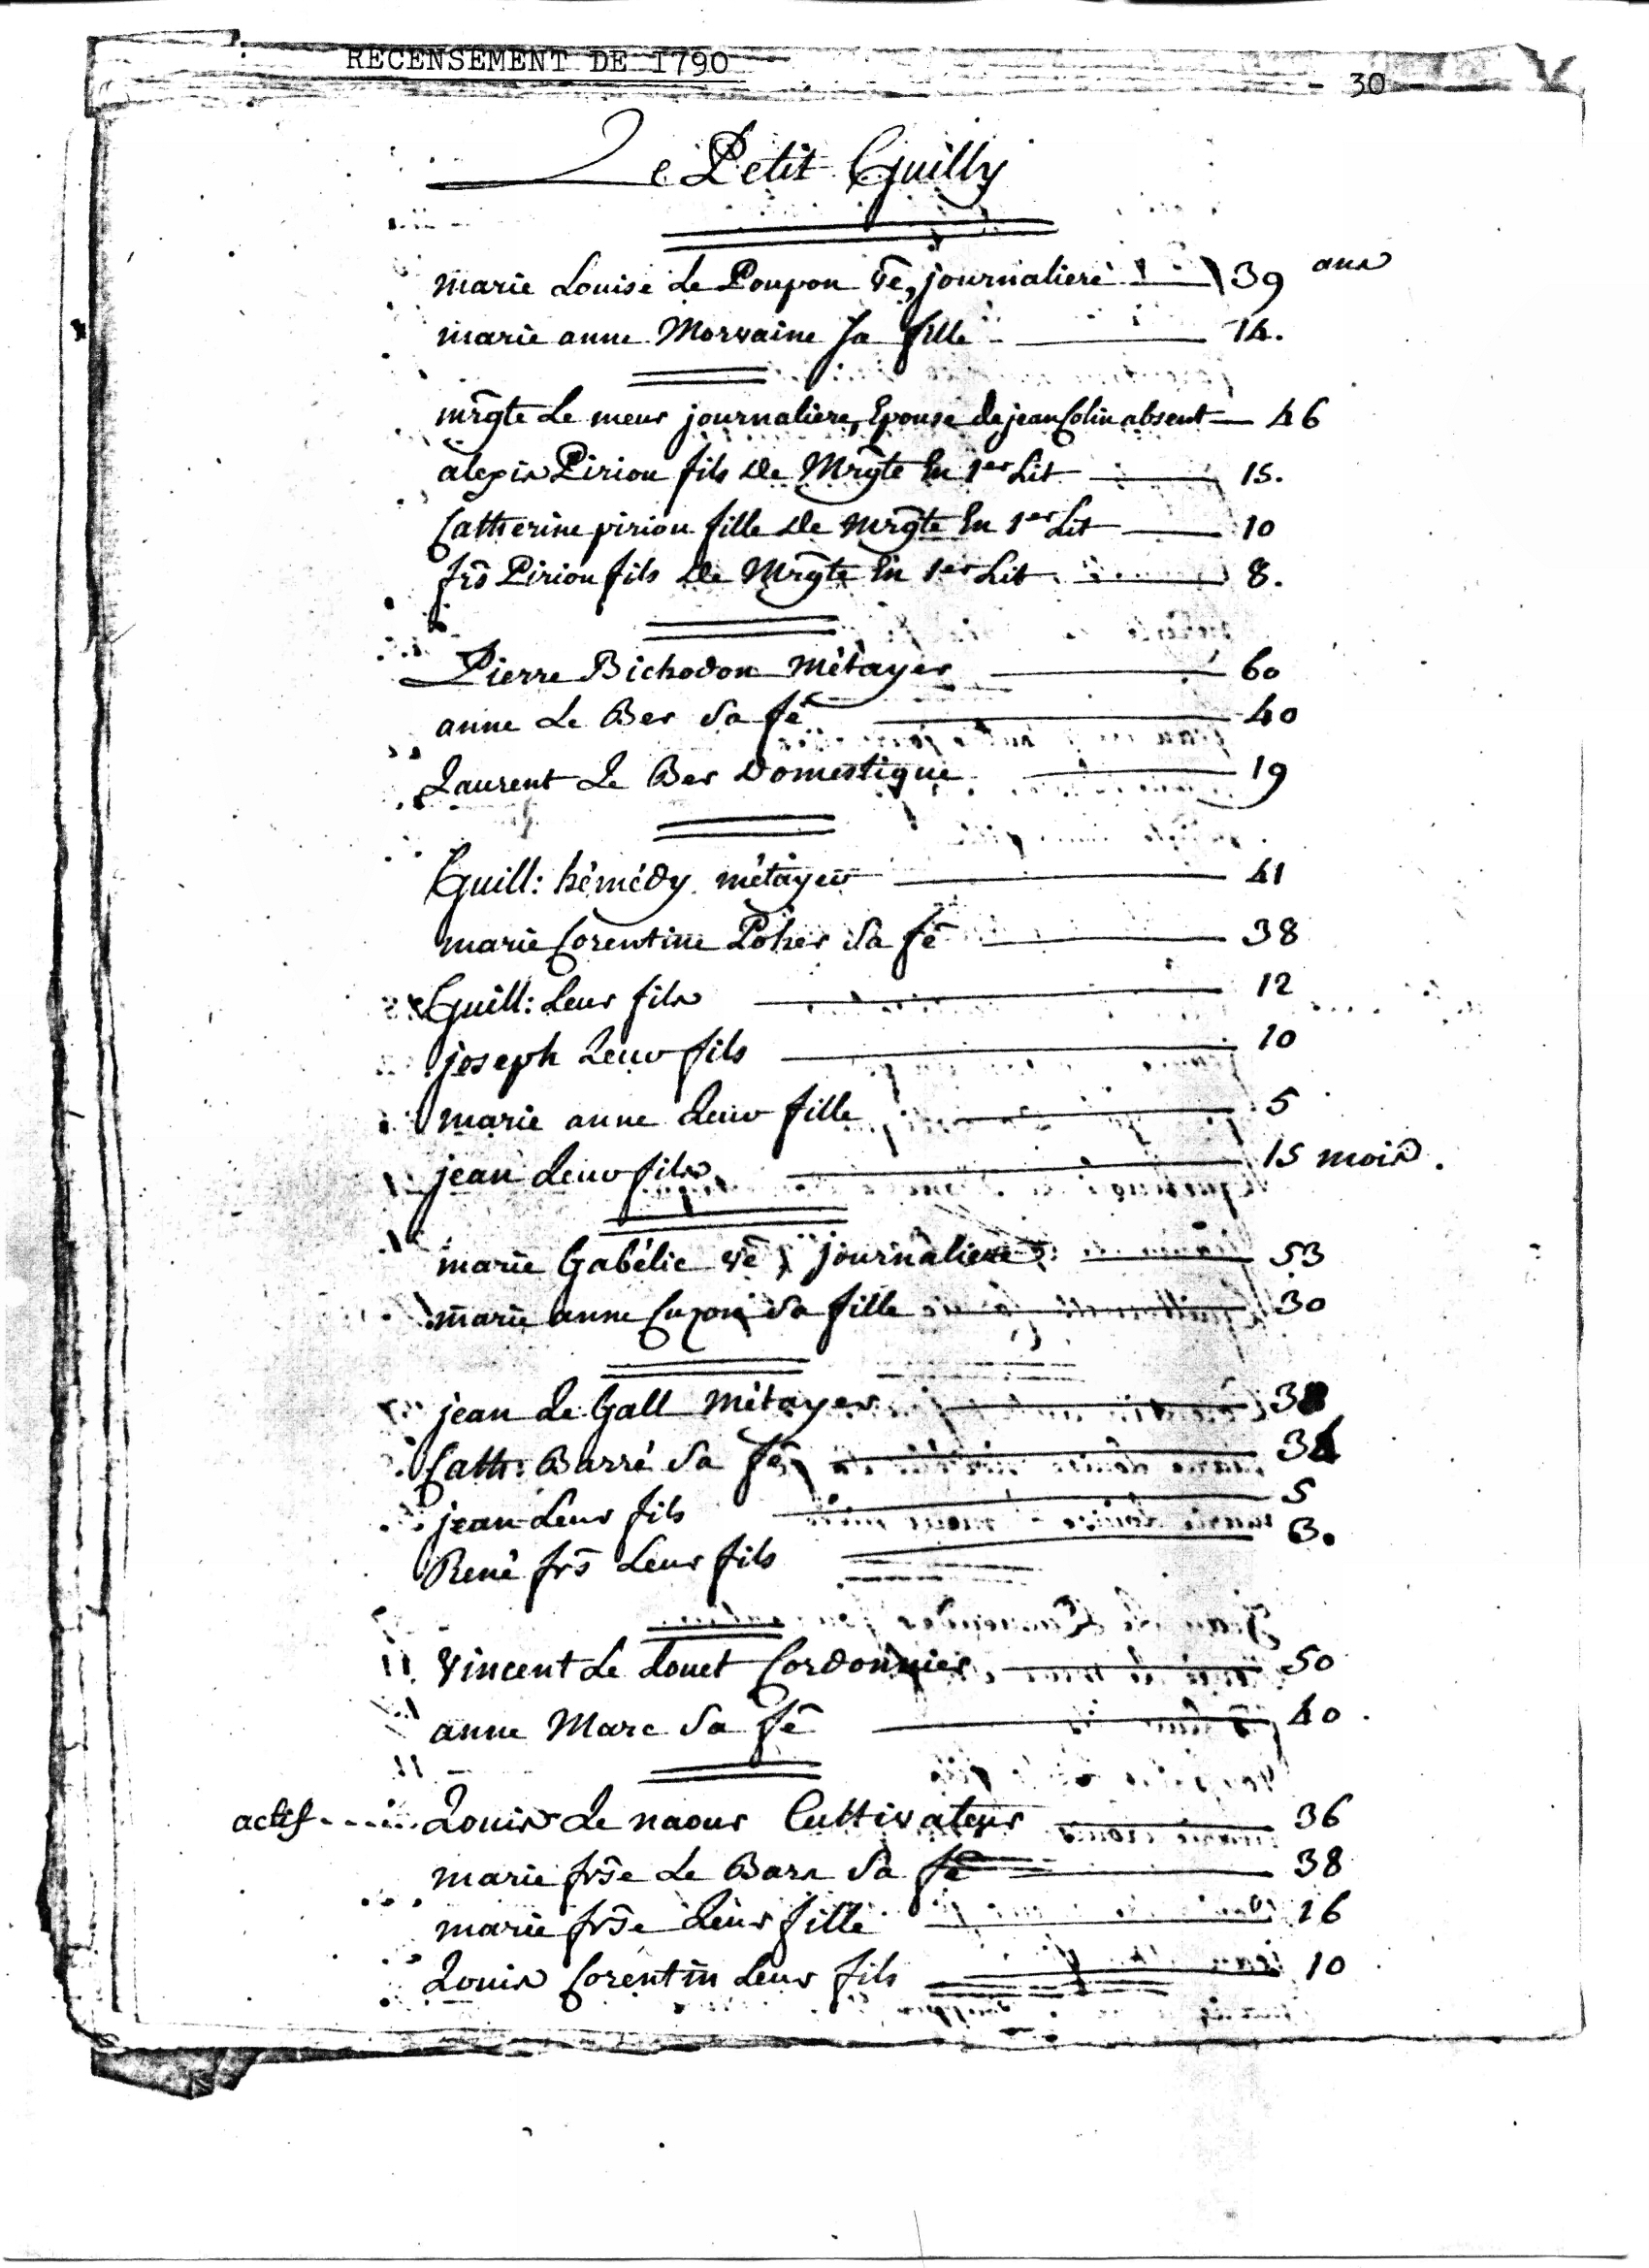 RECENSEMENT DE 1790
- 30 -
Le Petit Guilly
marie Louise Le Poupon vē, journaliere 39 ans
marie anne Morvaine sa fille 14.
mrḡte Le meur journaliere, Epouse de jean Colin absent 46
alexis Piriou fils de Mrḡte En 1er Lit 15.
Catherine piriou fille de mrḡte En 1er Lit 10
frs̄ Piriou fils de Mrḡte En 1er Lit 8.
Pierre Bichodon métayer 60
anne Le Ber sa fē 40
Laurent Le Ber Domestique 19
Guill: hémédy métayer 41
marie Corentine Poher sa fē 38
Guill: Leur fils 12
joseph Leur fils 10
marie anne Leur fille 5
jean Leur fils 15 mois.
marie Gabélic vē journaliere 53
marie anne Cuzon sa fille 30
jean Le Gall métayer 38
Cath: Barré sa fē 34
jean Leur fils 5
René frs̄ Leur fils 3.
Vincent Le Louet Cordonnier 50
anne Marc sa fē 40.
actif Louis Le naour Cultivateur 36
marie frs̄e Le Bars sa fē 38
marie frs̄e Leur fille 16
Louis Corentin Leur fils 10